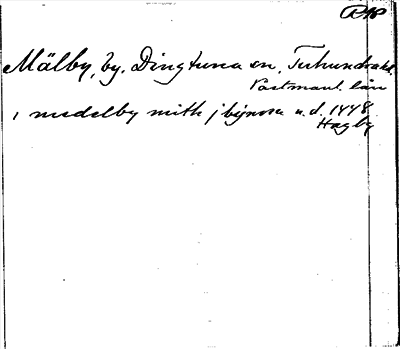 Mälby, by. Dingtuna sn, Tuhundrahd.
Västmanl. län
i medelby mith j bynom u. d. 1448
Hagby